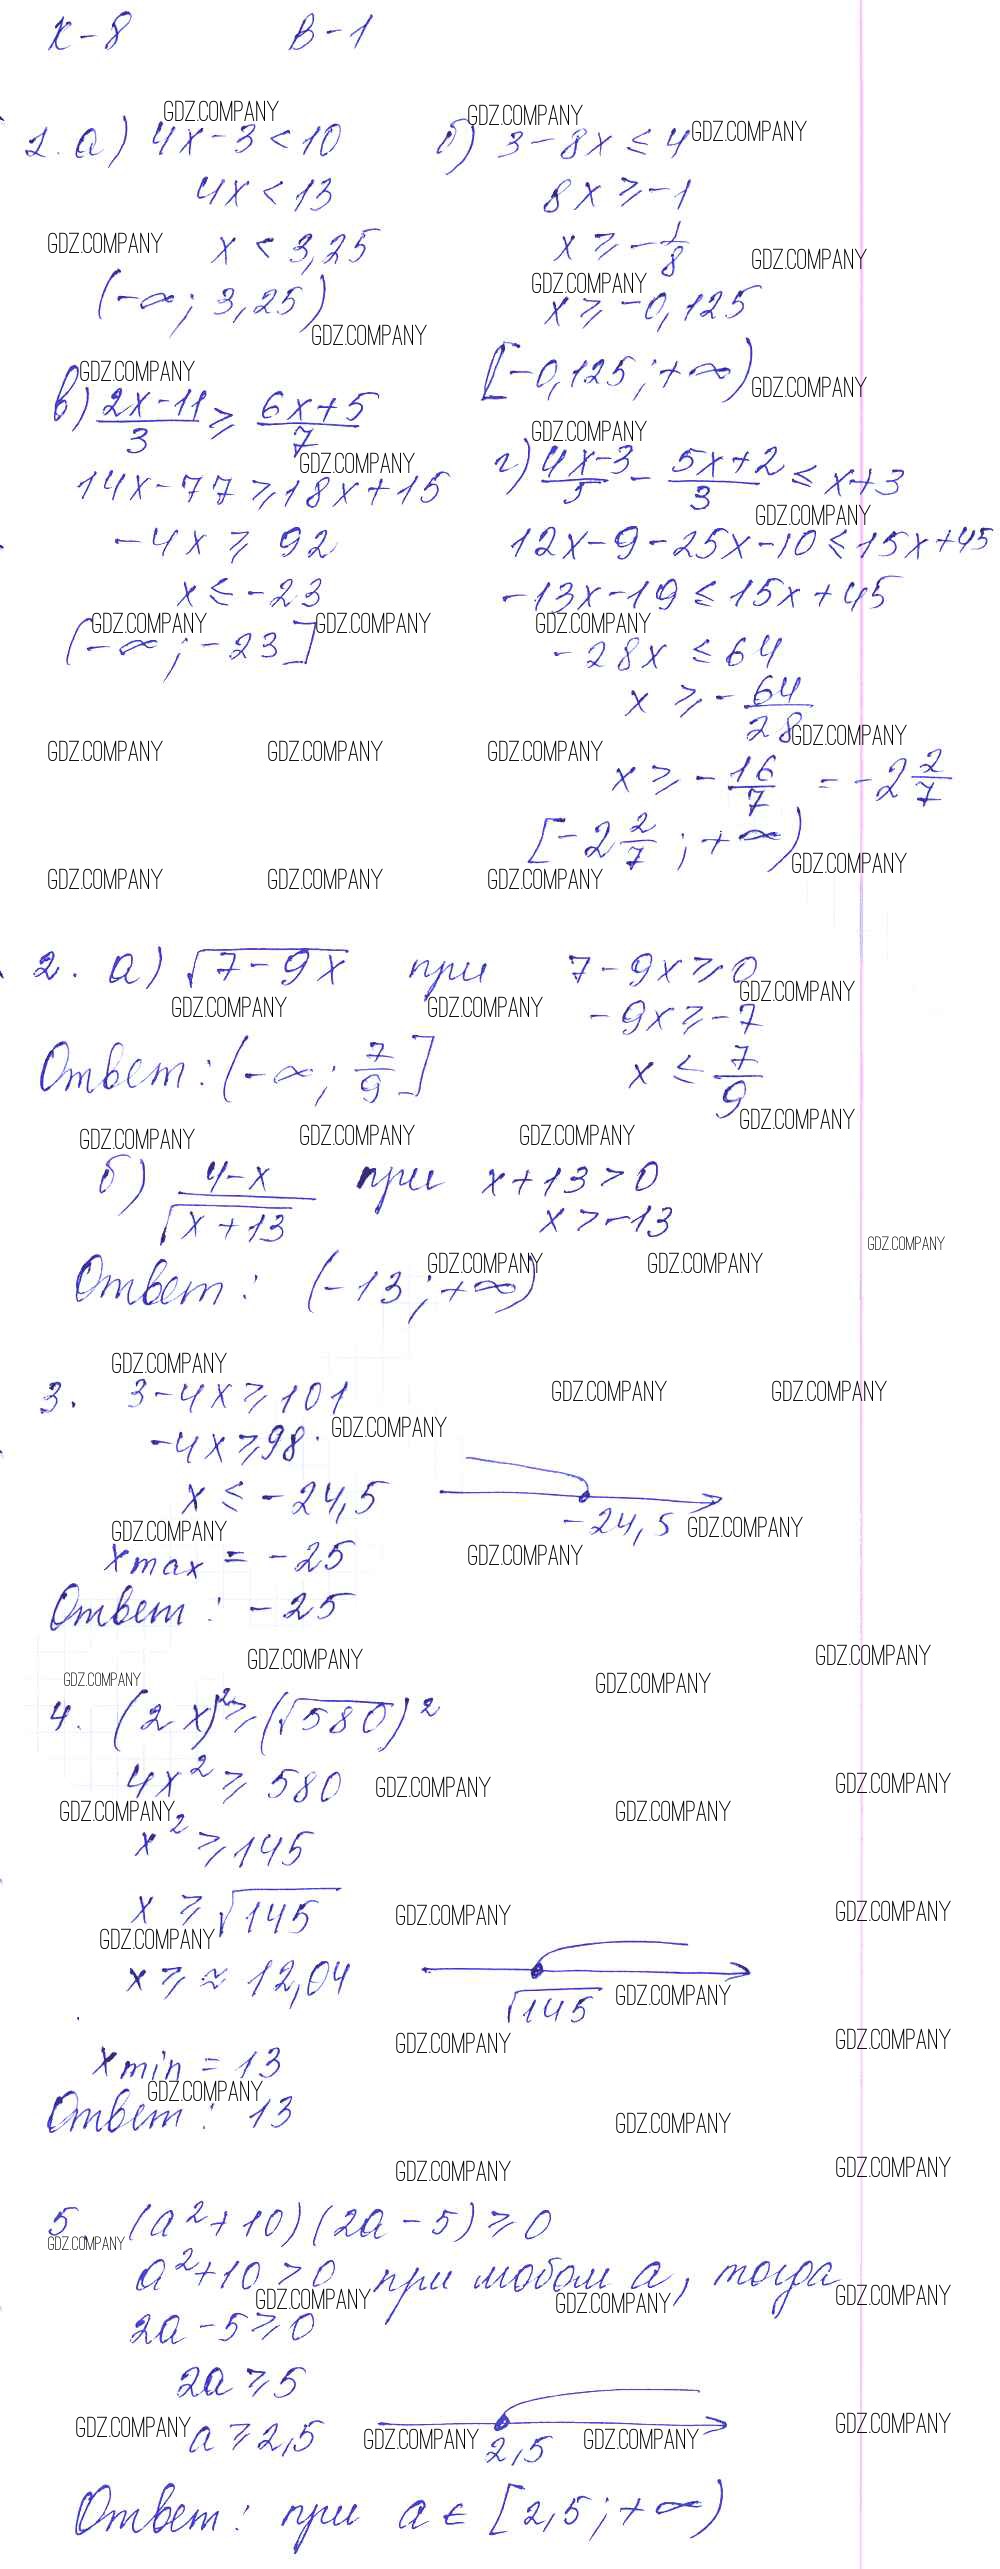 К-8 В-1
1. а) 4x-3<10
4x<13
x<3,25
(-∞; 3,25)
б) 3-8x≤4
8x≥-1
x≥-1/8
x≥-0,125
[-0,125;+∞)
в) (2x-11)/3 ≥ (6x+5)/7
14x-77≥18x+15
-4x≥92
x≤-23
(-∞;-23]
г) (4x-3)/5 - (5x+2)/3 ≤ x+3
12x-9-25x-10≤15x+45
-13x-19≤15x+45
-28x≤64
x≥-64/28
x≥-16/7 = -2 2/7
[-2 2/7; +∞)
2. а) √(7-9x) при 7-9x≥0
-9x≥-7
x≤7/9
Ответ: (-∞; 7/9]
б) (4-x)/√(x+13) при x+13>0
x>-13
Ответ: (-13;+∞)
3. 3-4x≥101
-4x≥98
x≤-24,5
-24,5
xmax = -25
Ответ: -25
4. (2x)²≥(√580)²
4x²≥580
x²≥145
x≥√145
x≥≈12,04
√145
xmin = 13
Ответ: 13
5. (a²+10)(2a-5)≥0
a²+10>0 при любом a, тогда
2a-5≥0
2a≥5
a≥2,5
2,5
Ответ: при a∈[2,5;+∞)
GDZ.COMPANY